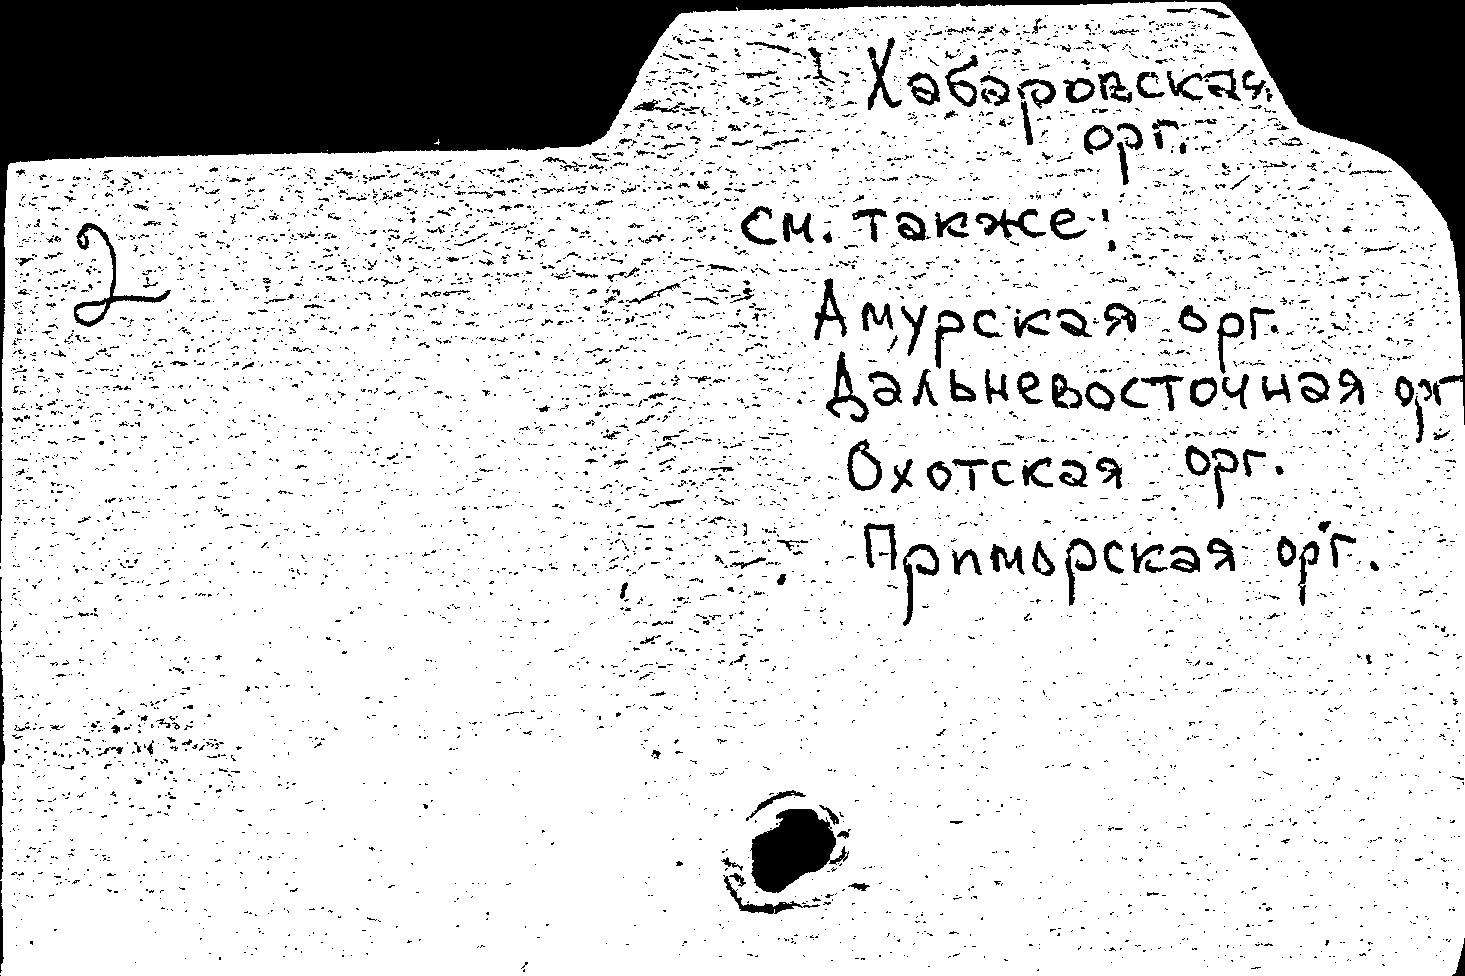 Хабаровская
орг.
2
см. также:
Амурская орг.
Дальневосточная орг
Охотская орг.
Приморская орг.